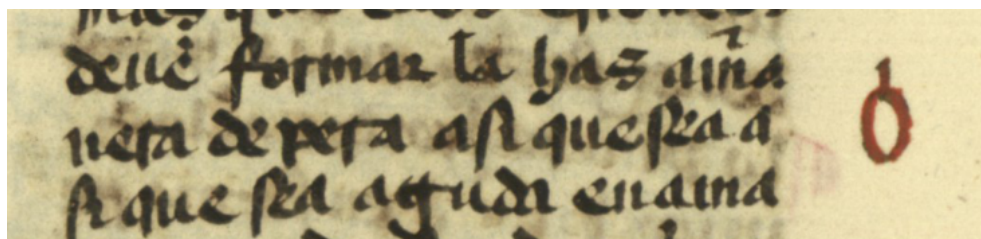 deuẽ formar la has a mña
nera de pera asi que sea a
si que sea aguda en ama